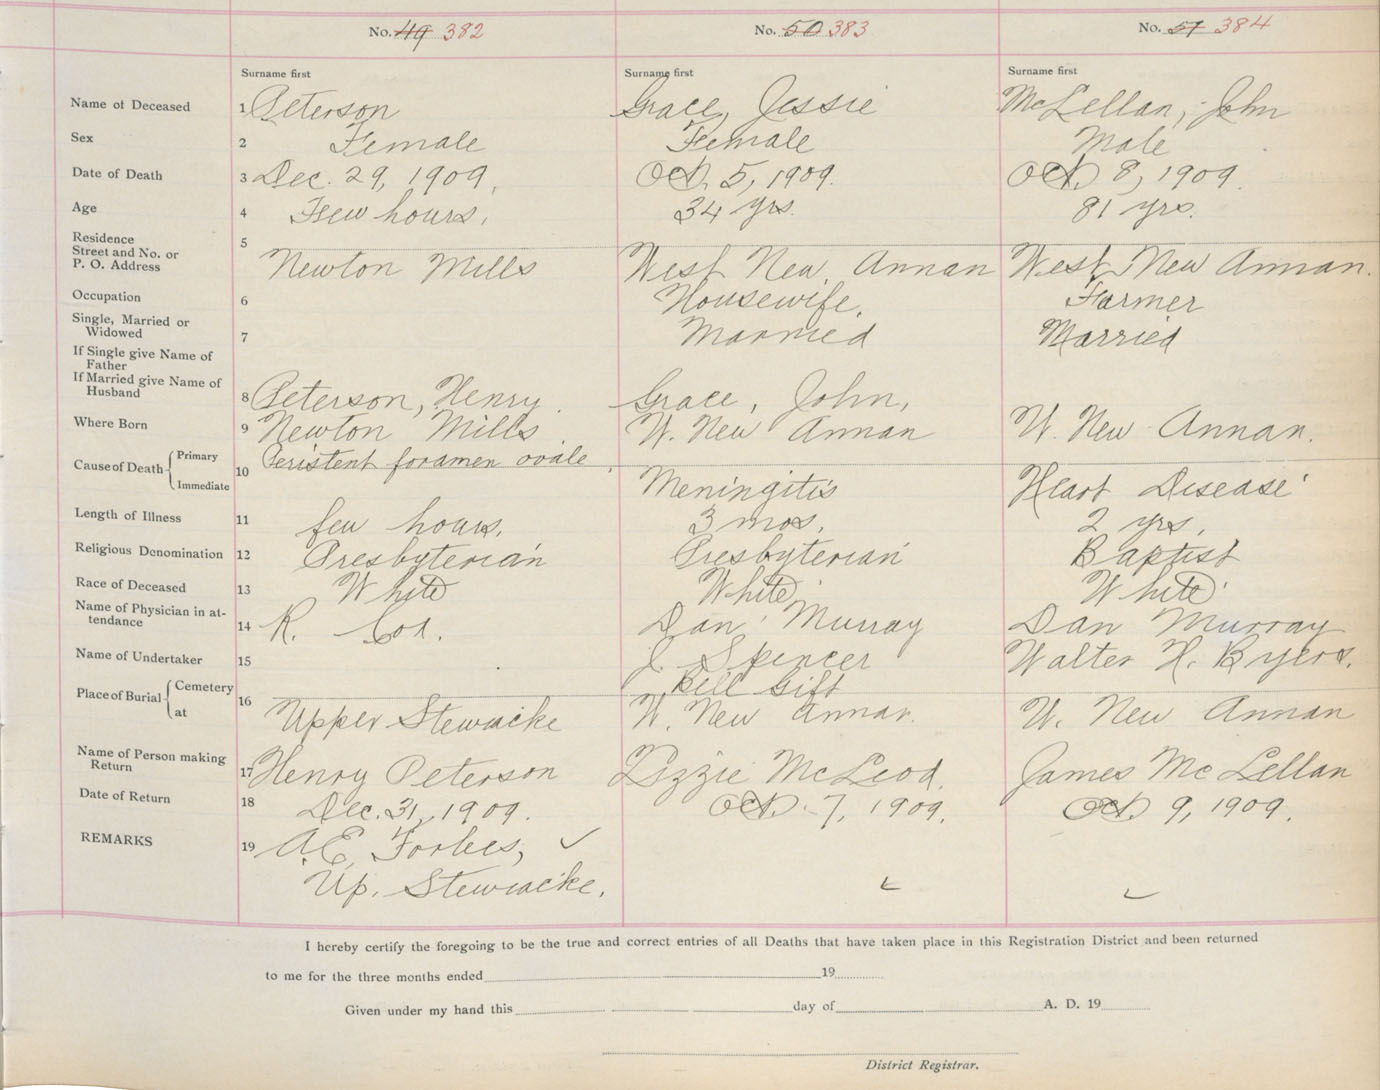 No. 49 382 No. 50 383 No. 51 384
Surname first Surname first Surname first
Name of Deceased 1 Peterson Grace, Jessie McLellan, John
Sex 2 Female Female Male
Date of Death 3 Dec. 29, 1909, Oct. 5, 1909. Oct. 8, 1909.
Age 4 Few hours, 34 yrs. 81 yrs.
Residence 5
Street and No. or
P. O. Address Newton Mills West New Annan West New Annan.
Occupation 6 Housewife, Farmer
Single, Married or
Widowed 7 Married Married
If Single give Name of
Father
If Married give Name of
Husband 8 Peterson, Henry. Grace, John,
Where Born 9 Newton Mills. W. New Annan W. New Annan.
Cause of Death Primary Peristent foramen ovale.
Immediate 10 Meningitis Heart Disease
Length of Illness 11 few hours. 3 mos. 2 yrs.
Religious Denomination 12 Presbyterian Presbyterian Baptist
Race of Deceased 13 White White White
Name of Physician in at-
tendance 14 R. Cox. Dan Murray Dan Murray
Name of Undertaker 15 J. Spencer Walter H. Byers.
Place of Burial Cemetery 16 Bell Gift
at Upper Stewiacke W. New Annan. W. New Annan
Name of Person making
Return 17 Henry Peterson Lizzie McLeod. James McLellan
Date of Return 18 Dec. 31, 1909. Oct. 7, 1909. Oct. 9, 1909.
REMARKS 19 A.E. Forbes,
Up. Stewiacke.
I hereby certify the foregoing to be the true and correct entries of all Deaths that have taken place in this Registration District and been returned
to me for the three months ended 19
Given under my hand this day of A. D. 19
District Registrar.